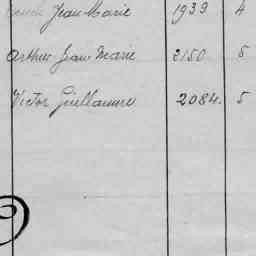 Jean Marie 1939 4
Arthur Jean Marie 2150 5
Victor Guillaume 2084. 5